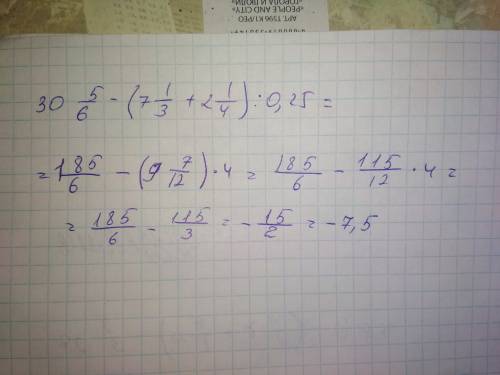 «PEOPLE AND CITY»
АРТ. Т596 К1/РЕО
30 5/6 - (7 1/3 + 2 1/4) : 0,25 =
= 185/6 - (9 7/12) · 4 = 185/6 - 115/12 · 4 =
= 185/6 - 115/3 = - 15/2 = - 7,5